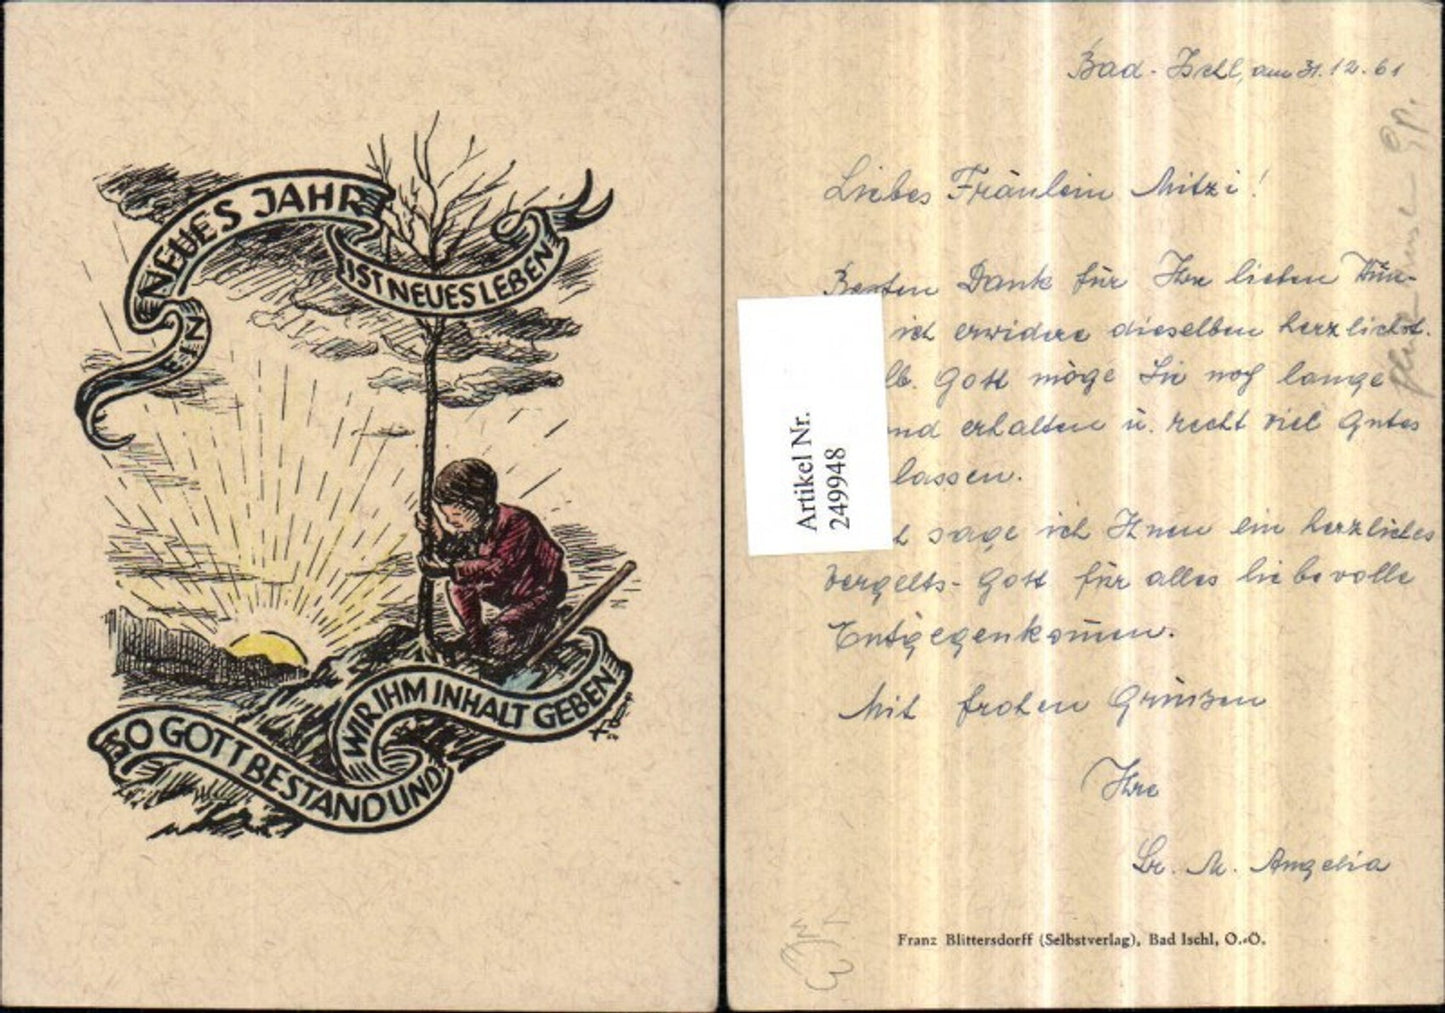 EIN
NEUES JAHR
IST NEUES LEBEN
SO GOTT BESTAND UND
WIR IHM INHALT GEBEN
Bad-Ischl, am 31.12.61
Liebes Fräulein Mitzi!
Besten Dank für Ihre lieben Wün-
ich erwidere dieselben herzlichst.
lb. Gott möge Sie noch lange
nd erhalten u. recht viel Gutes
lassen.
sage ich Ihnen ein herzliches
Vergelts-Gott für alles liebevolle
Entgegenkommen.
Mit frohen Grüssen
Ihre
Sr. M. Angelia
Artikel Nr.
249948
Franz Blittersdorff (Selbstverlag), Bad Ischl, O.-Ö.